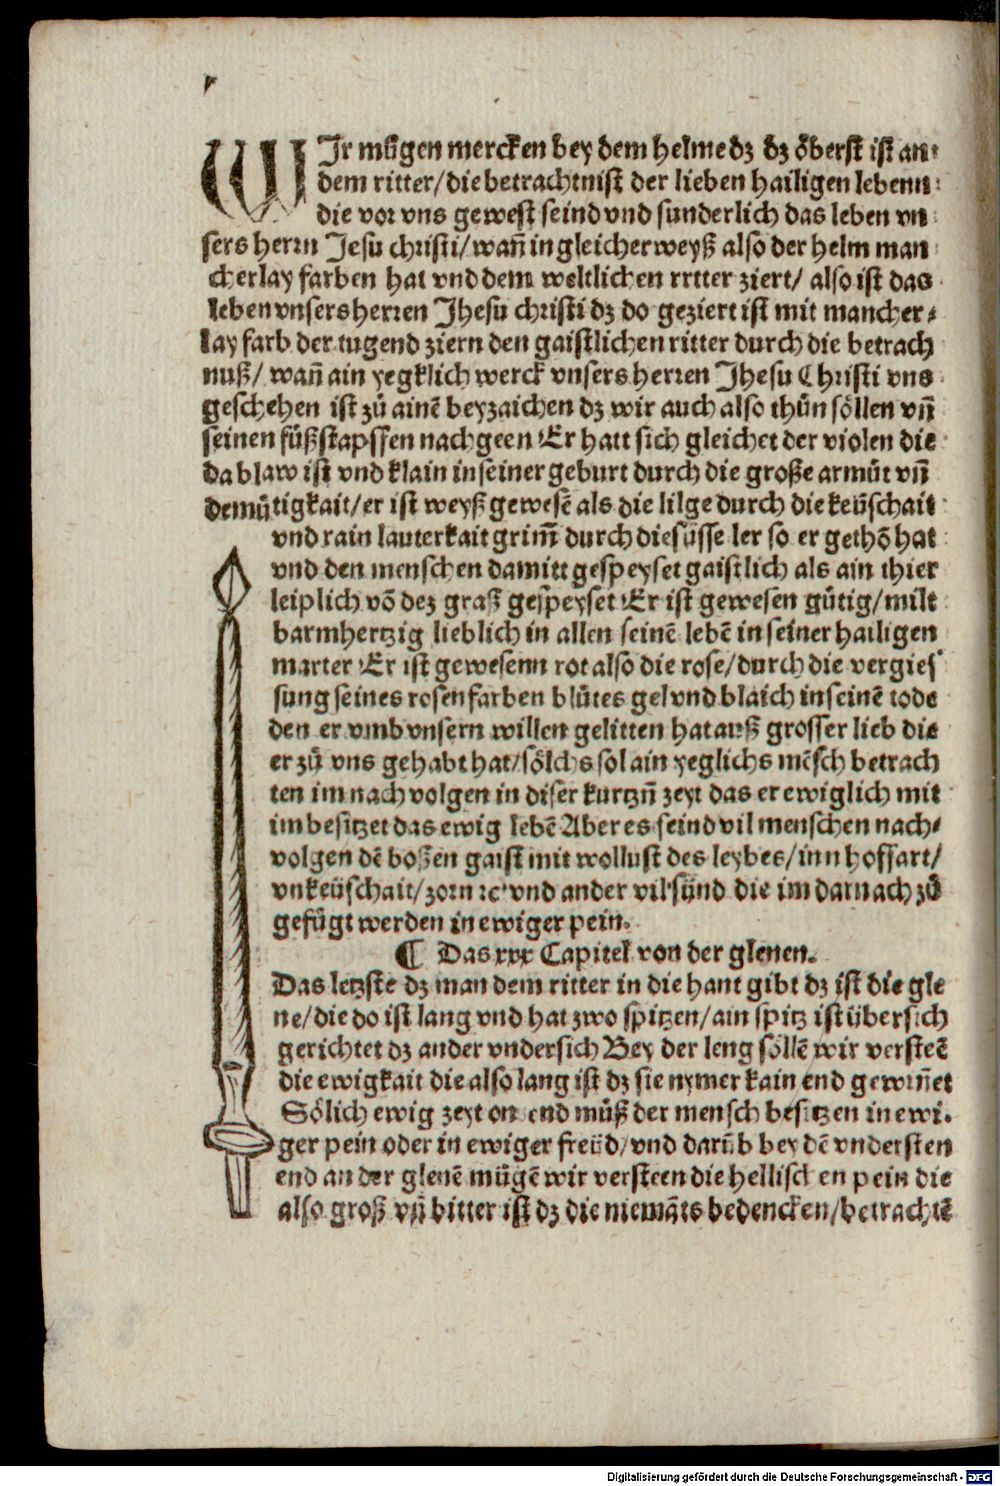 WJr mügen mercken bey dem helme dz dz öberst ist an⸗
dem ritter/die betrachtnist der lieben hailigen lebenn:
die vor vns gewest seind vnd sunderlich das leben vn:
sers herrn Jesu christi/wañ in gleicher weyß also der helm man
cherlay farben hat vnd dem weltlichen rrtter ziert/ also ist das
leben vnsers herren Jhesu christi dz do geziert ist mit mancher⸗
lay farb der tugend ziern den gaistlichen ritter durch die betrach
nuß/ wañ ain yegklich werck vnsers herren Jhesu Christi vns
geschehen ist zů ainē beyzaichen dz wir auch also thůn söllen vñ
seinen fůßstapffen nach geen Er hatt sich gleichet der violen die
da blaw ist vnd klain in seiner geburt durch die große armůt vñ
demůtigkait/er ist weyß gewesē als die lilge durch die keüschait
vnd rain lauterkait grim̄ durch die süsse ler so er gethō hat
vnd den menschen damitt gespeyset gaistlich als ain thier
leiplich vō dez graß gespeyset Er ist gewesen gütig/milt
barmhertzig lieblich in allen seinē lebē in seiner hailigen
marter Er ist gewesenn rot also die rose/durch die vergies⸗
sung seines rosenfarben blůtes gel vnd blaich in seinē tode
den er vmb vnsern willen gelitten hat auß grosser lieb die
er zů vns gehabt hat/sölchs sol ain yeglichs mēsch betrach
ten im nach volgen in diser kurtzñ zeyt das er ewiglich mit
im besitzet das ewig lebē Aber es seind vil menschen nach⸗
volgen dē boßen gaist mit wollust des leybes/inn hoffart/
vnkeüschait/zorn ꝛc vnd ander vil sünd die im darnach zů
gefügt werden in ewiger pein.
¶ Das xxx Capitel von der glenen.
Das letzste dz man dem ritter in die hant gibt dz ist die gle
ne/die do ist lang vnd hat zwo spitzen/ain spitz ist übersich
gerichtet dz ander vndersich Bey der leng söllē wir versteē
die ewigkait die also lang ist dz sie nymer kain end gewiñet
Sölich ewig zeyt on end můß der mensch besitzen in ewi.
ger pein oder in ewiger freüd/vnd darūb bey dē vndersten
end an der glenē mügē wir versteen die hellischen pein die
also groß vñ bitter ist dz die niemāts bedencken/betrachtē
Digitalisierung gefördert durch die Deutsche Forschungsgemeinschaft - DFG